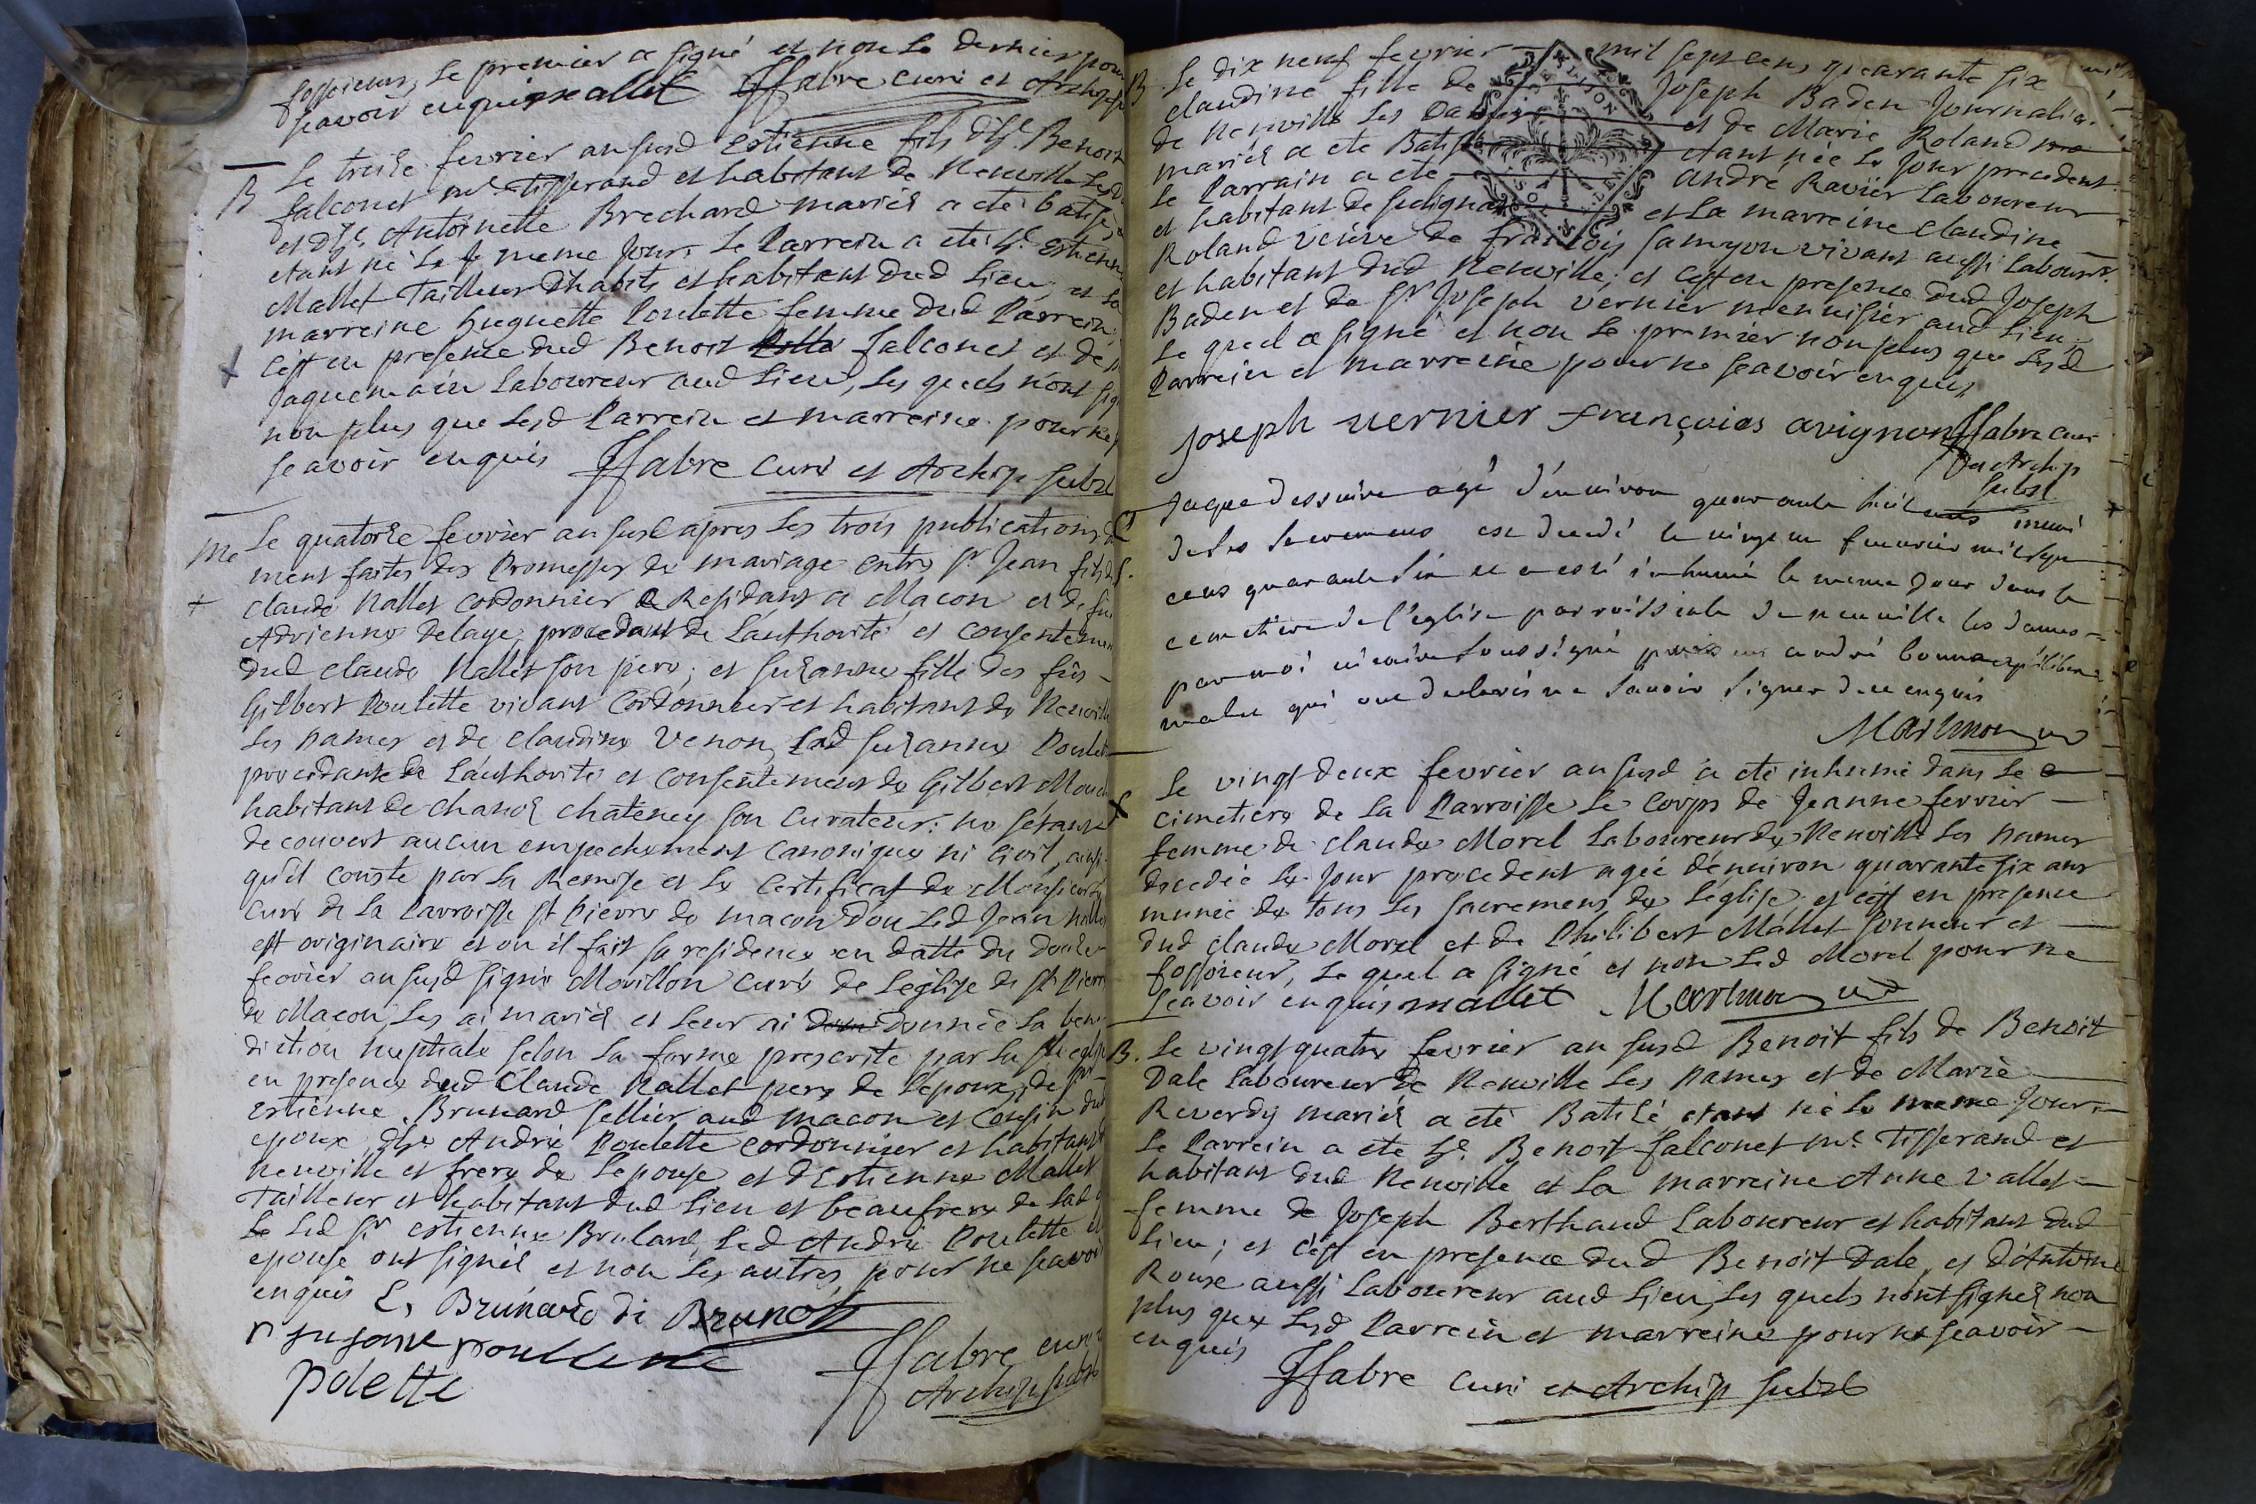 fossoieur, le premier a signé et non le dernier pour
scavoir enquis mallet Ffabre curé et Archip
B Le treize fevrier an susd Estienne fils d'h.e Benoit
falconet m.e Tisserand et habitant de Neuville les
et d'h.e Antoinette Brechard mariés a eté batisé
etant né le meme Jour. Le Parrein a eté h.e Estienne
Mallet Tailleur d'habits et habitant dud Lieu, et la
marreine huguette Poulette femme dud Parrein,
c'est en presence dud Benoit falconet et de
Jaquemain Laboureur aud Lieu, les quels n'ont
non plus que lesd Parrein et marreine pour ne
scavoir enquis Ffabre curé et Archip subst
Me Le quatorze fevrier an susd apres les trois publications
ment faites des Promesses de mariage entre s.r Jean fils
Claude Nallet cordonnier Residant a Macon et de
Adrienne Delaye, procedant de L'authorité et consentement
dud claude Nallet son pere; et suzanne fille des fus
Gilbert Poulette vivant Cordonnier et habitant de Neuville
les Dames et de claudine Venon, Lad suzanne Poulette
procedante de L'authorité et consentement de Gilbert
habitant de chanoz chateney son curateur: ne s'etant
decouvert aucun empechement canonique ni civil, ainsi
qu'il conste par la Remise et le certificat de Monsieur
curé de la Parroisse st Pierre de macon d'ou Led Jean
est originaire et ou il fait sa residence en datte du douze
fevrier an susd signé Movillon curé de L'eglise de st Pierre
de Macon Les ai mariés et leur ai donnée la bene
diction nuptiale selon la forme prescrite par la ste eglise
en presence dud Claude Nallet pere de L'epoux, de
Estienne Brunard sellier aud macon et cousin dud
epoux, d'h.e André Poulette cordonnier et habitant
Neuville et frere de L'epouse et d'Estienne Mallet
Tailleur et habitant dud Lieu et beaufrere de lad
Led s.r estienne Brulard, Led André Poulette et
epouse ont signés et non les autres pour ne scavoir
enquis E, Brunard di Brunot
susane poullette
polette Ffabre curé
Archip subst
B Le dix neuf fevrier mil sept cens quarante six
claudine fille de Joseph Baden Journalier
de Neuville les Dames et de Marie Roland
mariés a eté Batisée etant née le Jour precedent
Le Parrain a eté andré Ravier Laboureur
et habitant de sulignat et La marreine claudine
Roland veuve de françois samyon vivant aussi Laboureur
et habitant dud Neuville; et c'est en presence dud Joseph
Baden et de s.r Joseph vernier menuisier aud Lieu
le quel a signé et non le premier non plus que lesd
Parrein et marreine pour ne scavoir enquis
joseph vernier françoies avignon Ffabre curé
et Archip
subst
Jaque dessaive agé d'environ quarante huit ans muni
de ses sacremens est decedé le vingt fevrier mil sept
cens quarante six et a esté inhumé le meme Jour dans le
cemetiere de l'eglise parroissiale de neuville les dames
par moi vicaire soussigné andré bonnac philibert
malet qui ont declarés ne savoir signer de ce enquis
Marhmon
Le vingt deux fevrier an susd a eté inhumé dans le
cimetiere de la Parroisse le corps de Jeanne ferrier
femme de claude Morel Laboureur de Neuville les Dames
decedée le Jour precedent agée d'environ quarante six ans
munie de tous les sacremens de L'eglise, et c'est en presence
dud claude Morel et de Philibert Mallet sonneur et
fossoieur, le quel a signé et non Led Morel pour ne
scavoir enquis mallet Marhmon
B. Le vingt quatre fevrier an susd Benoit fils de Benoit
Dale Laboureur de Neuville les Dames et de Marie
Reverdy mariés a eté Batisé etant né le meme Jour
Le Parrein a eté h.e Benoit falconet m.e Tisserand et
habitant dud Neuville et La marreine Anne Vallet
femme de Joseph Berthaud Laboureur et habitant dud
Lieu; et c'est en presence dud Benoit Dale, et d'Antoine
Roux aussi Laboureur aud Lieu, les quels n'ont signés non
plus que lesd Parrein et marreine pour ne scavoir
enquis Ffabre curé et Archip subst